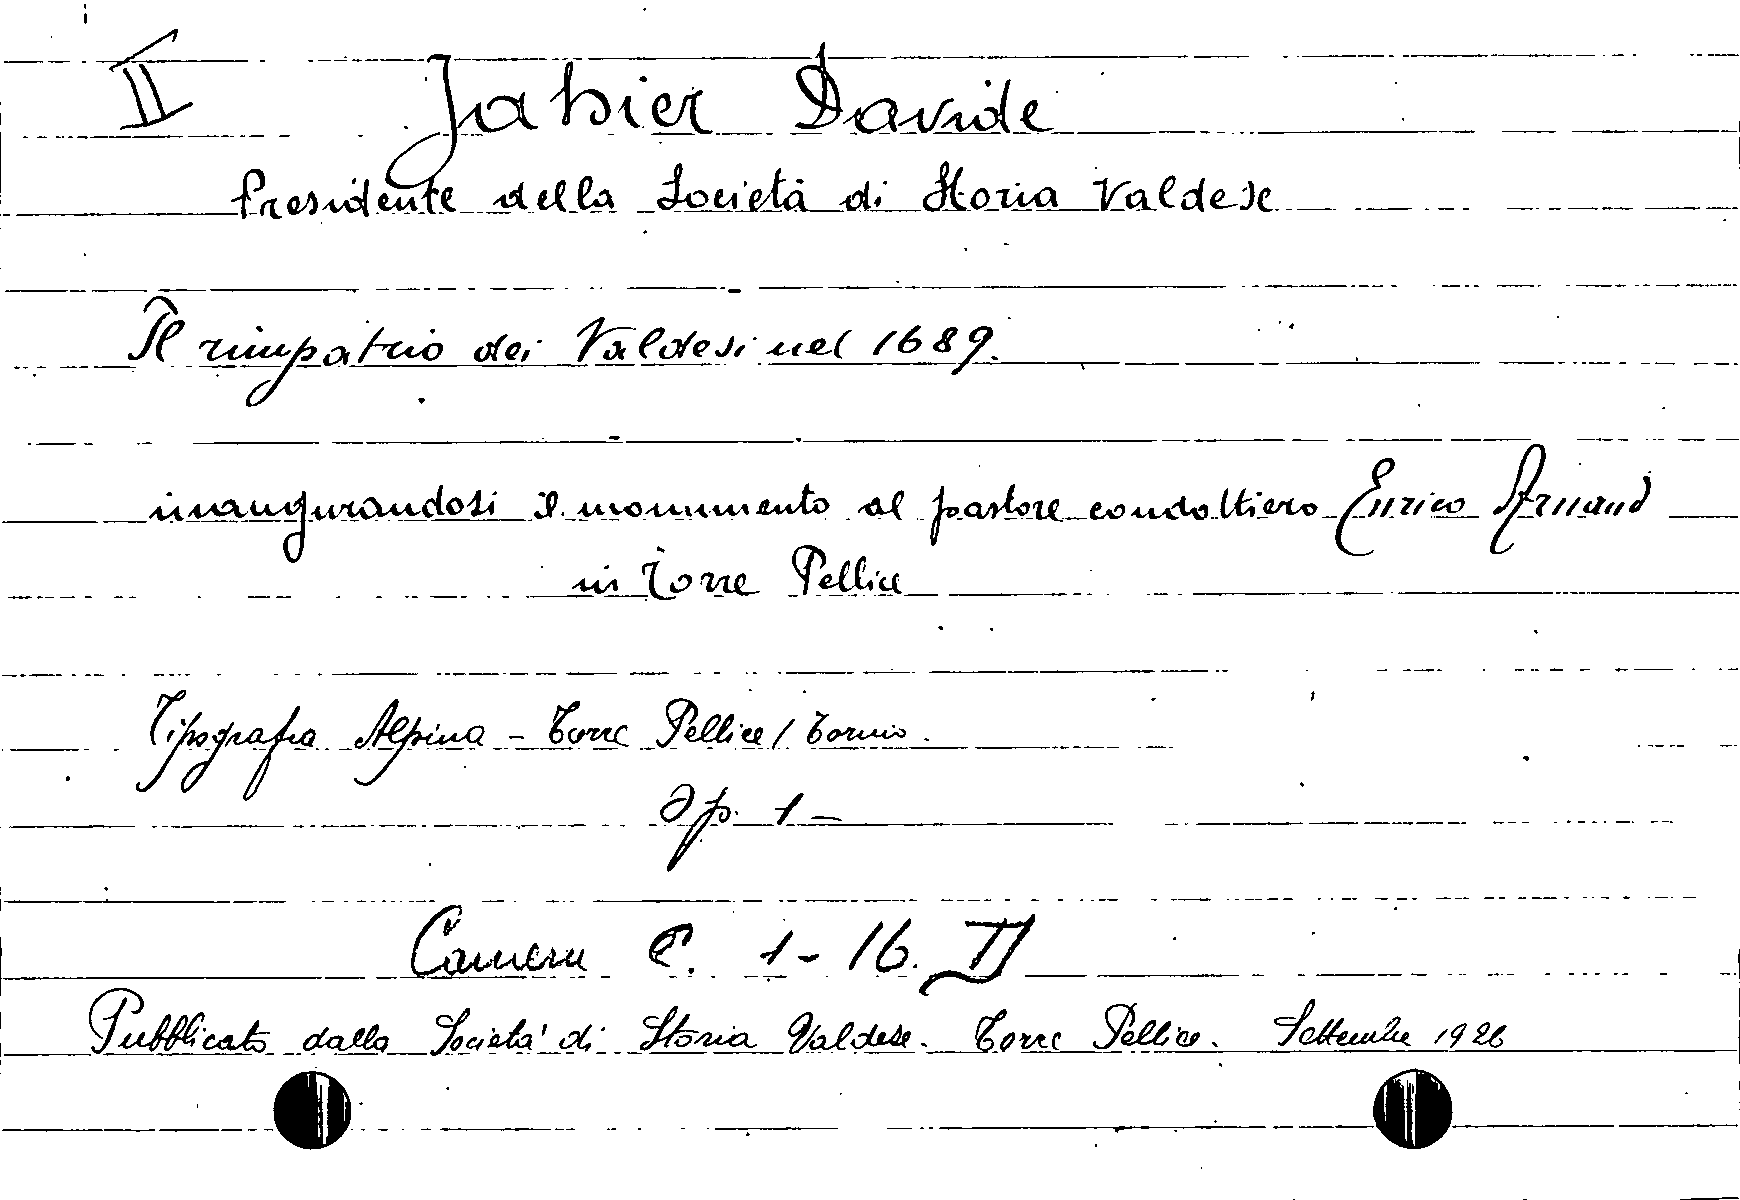 II Jahier Davide
Presidente della Società di Storia Valdese
Il rimpatrio dei Valdesi nel 1689.
inaugurandosi il monumento al pastore condottiero Enrico Arnaud
in Torre Pellice
Tipografia Alpina - Torre Pellice / Torino.
Op. 1 -
Camera C. 1 - 16. D
Pubblicato dalla Società di Storia Valdese. Torre Pellice. Settembre 1926